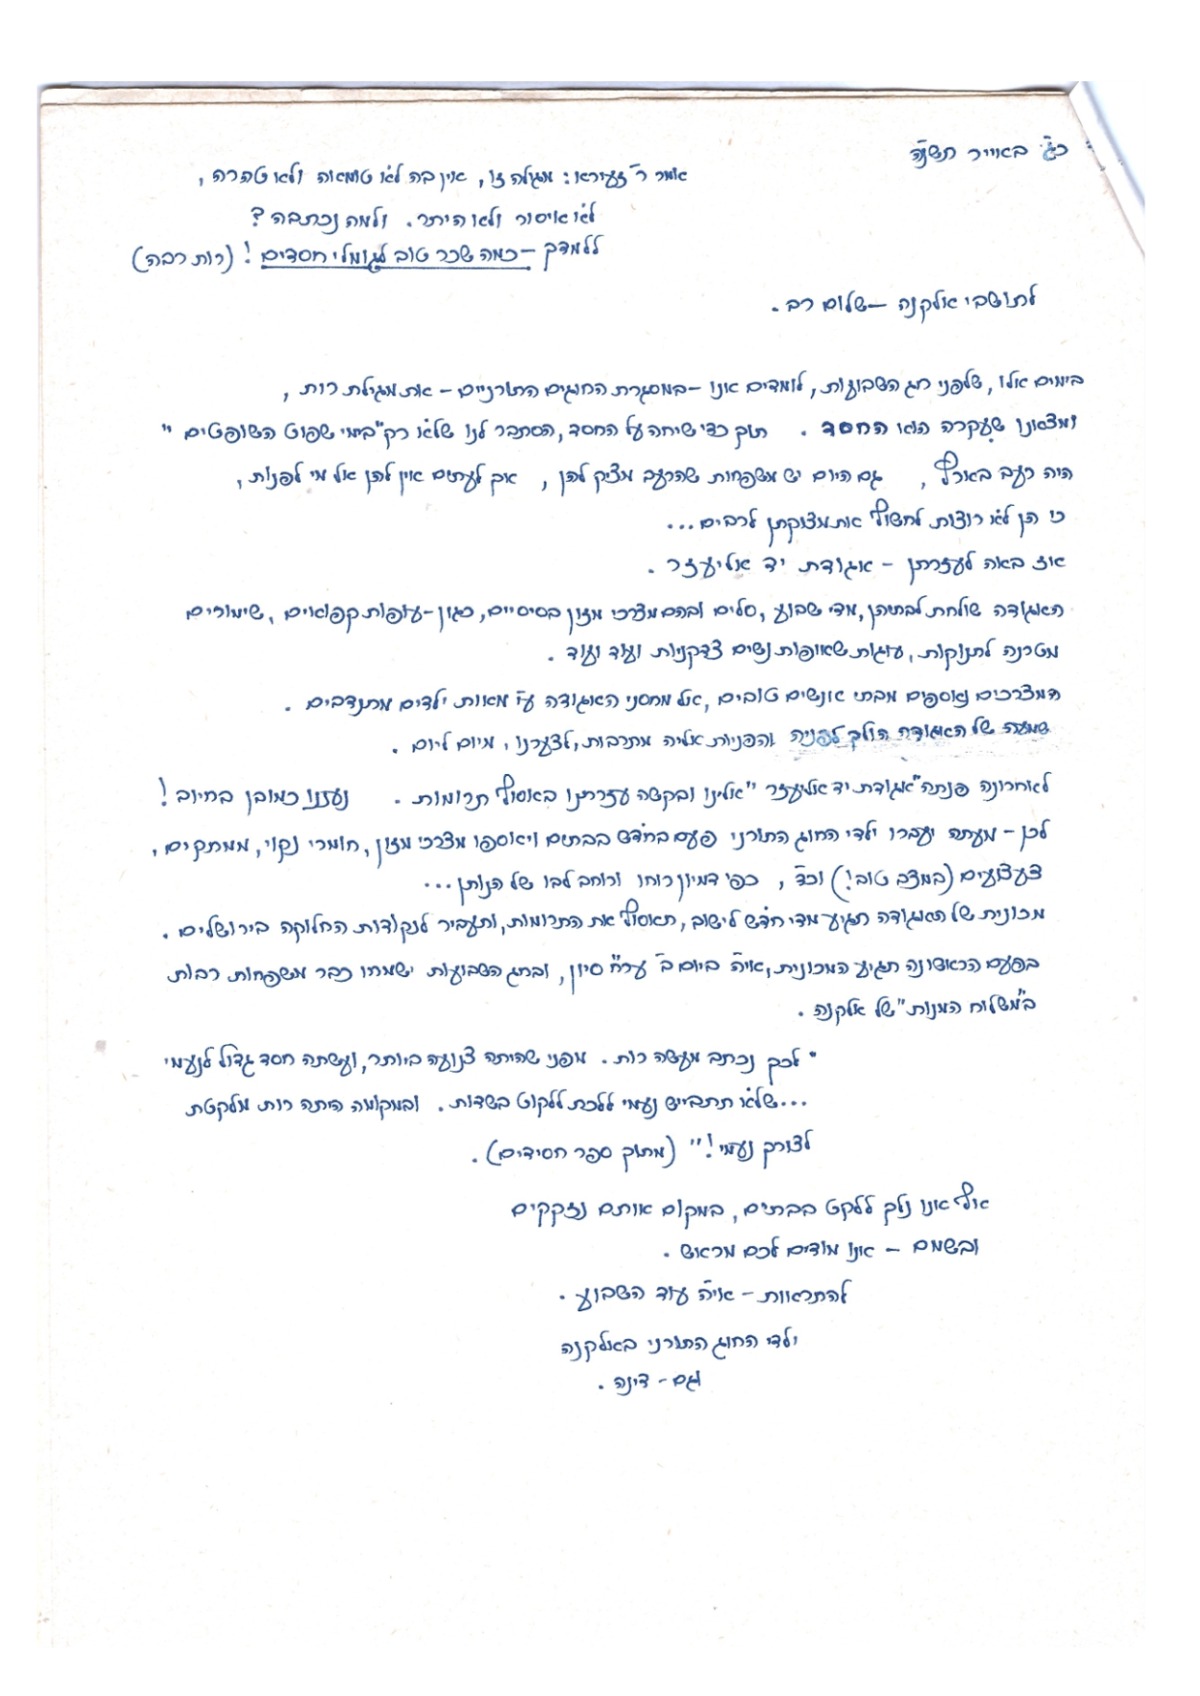 כ"ג באייר תשנ"ה
אמר ר' זעירא: מגלה זו, אין בה לא טומאה ולא טהרה,
לא איסור ולא היתר. ולמה נכתבה?
ללמדך – כמה שכר טוב לגומלי חסדים! (רות רבה)
לתושבי אלקנה – שלום רב.
בימים אלו, שלפני חג השבועות, לומדים אנו – במסגרת החוגים התורניים – את מגילת רות,
ומצאנו שעקרה הוא החסד. תוך כדי שיחה על החסד, הסתבר לנו שלא רק "בימי שפוט השופטים"
היה רעב בארץ, גם היום יש משפחות שהרעב מציק להן, אך לעתים אין להן אל מי לפנות,
כי הן לא רוצות לחשוף את מצוקתן לרבים...
אז באה לעזרתן – אגודת יד אליעזר.
האגודה שולחת לבתיהן, מדי שבוע, סלים ובהם מצרכי מזון בסיסיים, כגון – עופות קפואים, שימורים
מטרנה לתנוקות, עוגות שאופות נשים צדקניות ועוד ועוד.
המצרכים נאספים מבתי אנשים טובים, אל מחסני האגודה ע"י מאות ילדים מתנדבים.
שמעה של האגודה הולך לפניה והפניות אליה מתרבות, לצערנו, מיום ליום.
לאחרונה פנתה "אגודת יד אליעזר" אלינו ובקשה עזרתנו באסוף תרומות. נענו כמובן בחיוב!
לכן – מעתה יעברו ילדי החוג התורני פעם בחדש בבתים ויאספו מצרכי מזון, חומרי נקוי, ממתקים,
צעצועים (במצב טוב!) וכד', כפי דמיון רוחו ורוחב לבו של הנותן...
מכונית של האגודה תגיע מדי חדש לישוב, תאסוף את התרומות, ותעביר לנקודות החלוקה בירושלים.
בפעם הראשונה תגיע המכונית, אי"ה ביום ב' ער"ח סיון, ובחג השבועות ישמחו כבר משפחות רבות
ב"משלוח המנות" של אלקנה.
"לכך נכתב מעשה רות. מפני שהיתה צנועה ביותר, ועשתה חסד גדול לנעמי
...שלא תתבייש נעמי ללכת ללקוט בשדות. ובמקומה היתה רות מלקטת
לצורך נעמי!" (מתוך ספר חסידים).
אף אנו נלך ללקט בבתים, במקום אותם נזקקים
ובשמם – אנו מודים לכם מראש.
להתראות – אי"ה עוד השבוע.
ילדי החוג התורני באלקנה
וגם – דינה.